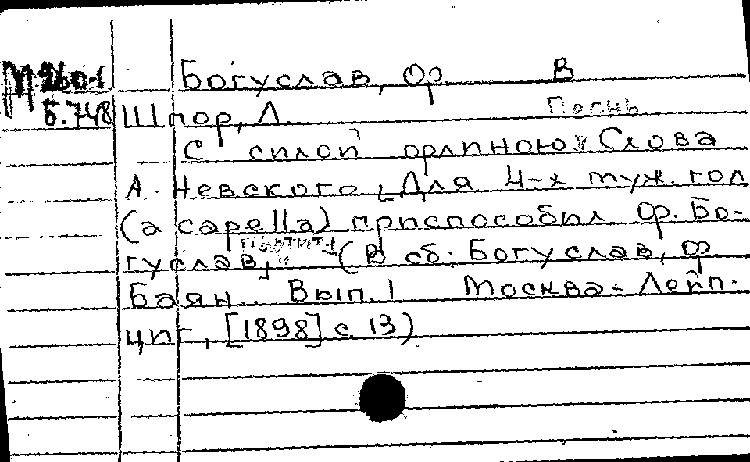 М 260-1 Богуслав, Ор. В
Б.748 Шпор, Л. Песнь
С силой орлиною. Слова
А. Невского, Для 4-х муж. гол
(a capella) приспособил Ор. Бо-
гуслав, (В сб: Богуслав, Ор
Баян. Вып. 1 Москва-Лейп-
циг, [1898] с 13)